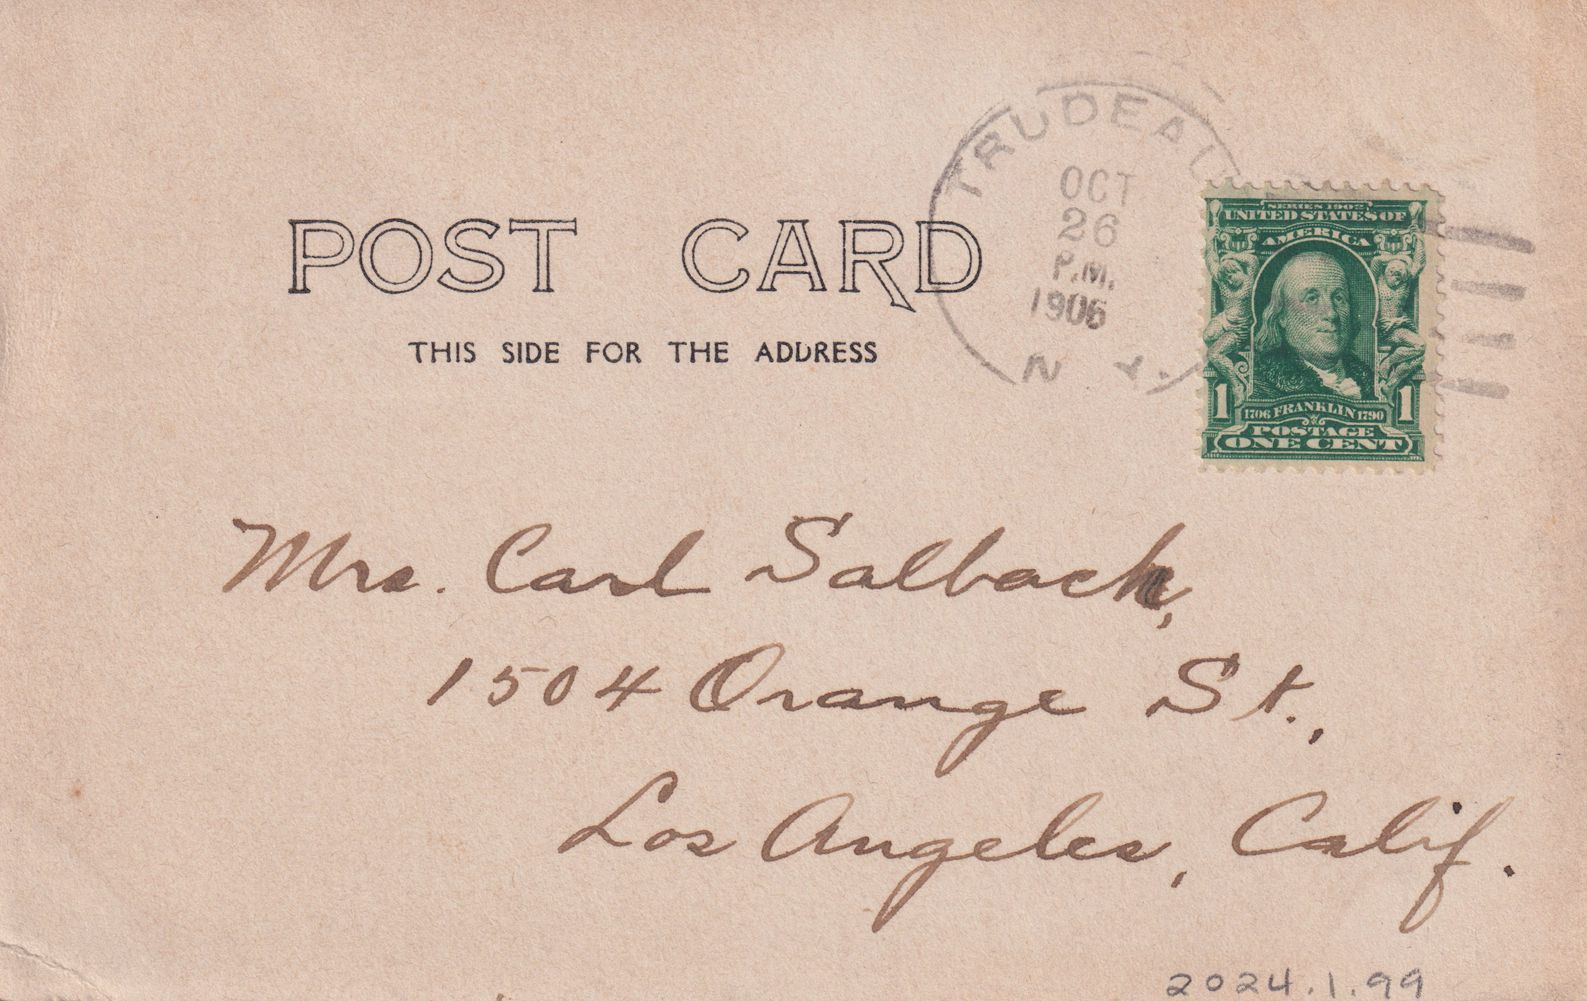 TRUDEAU
OCT
26
P.M.
1906
N. Y.
POST CARD
THIS SIDE FOR THE ADDRESS
SERIES 1902
UNITED STATES OF
AMERICA
1 1706 FRANKLIN 1790 1
POSTAGE
ONE CENT
Mrs. Carl Salbach,
1504 Orange St.,
Los Angeles, Calif.
2024.1.99